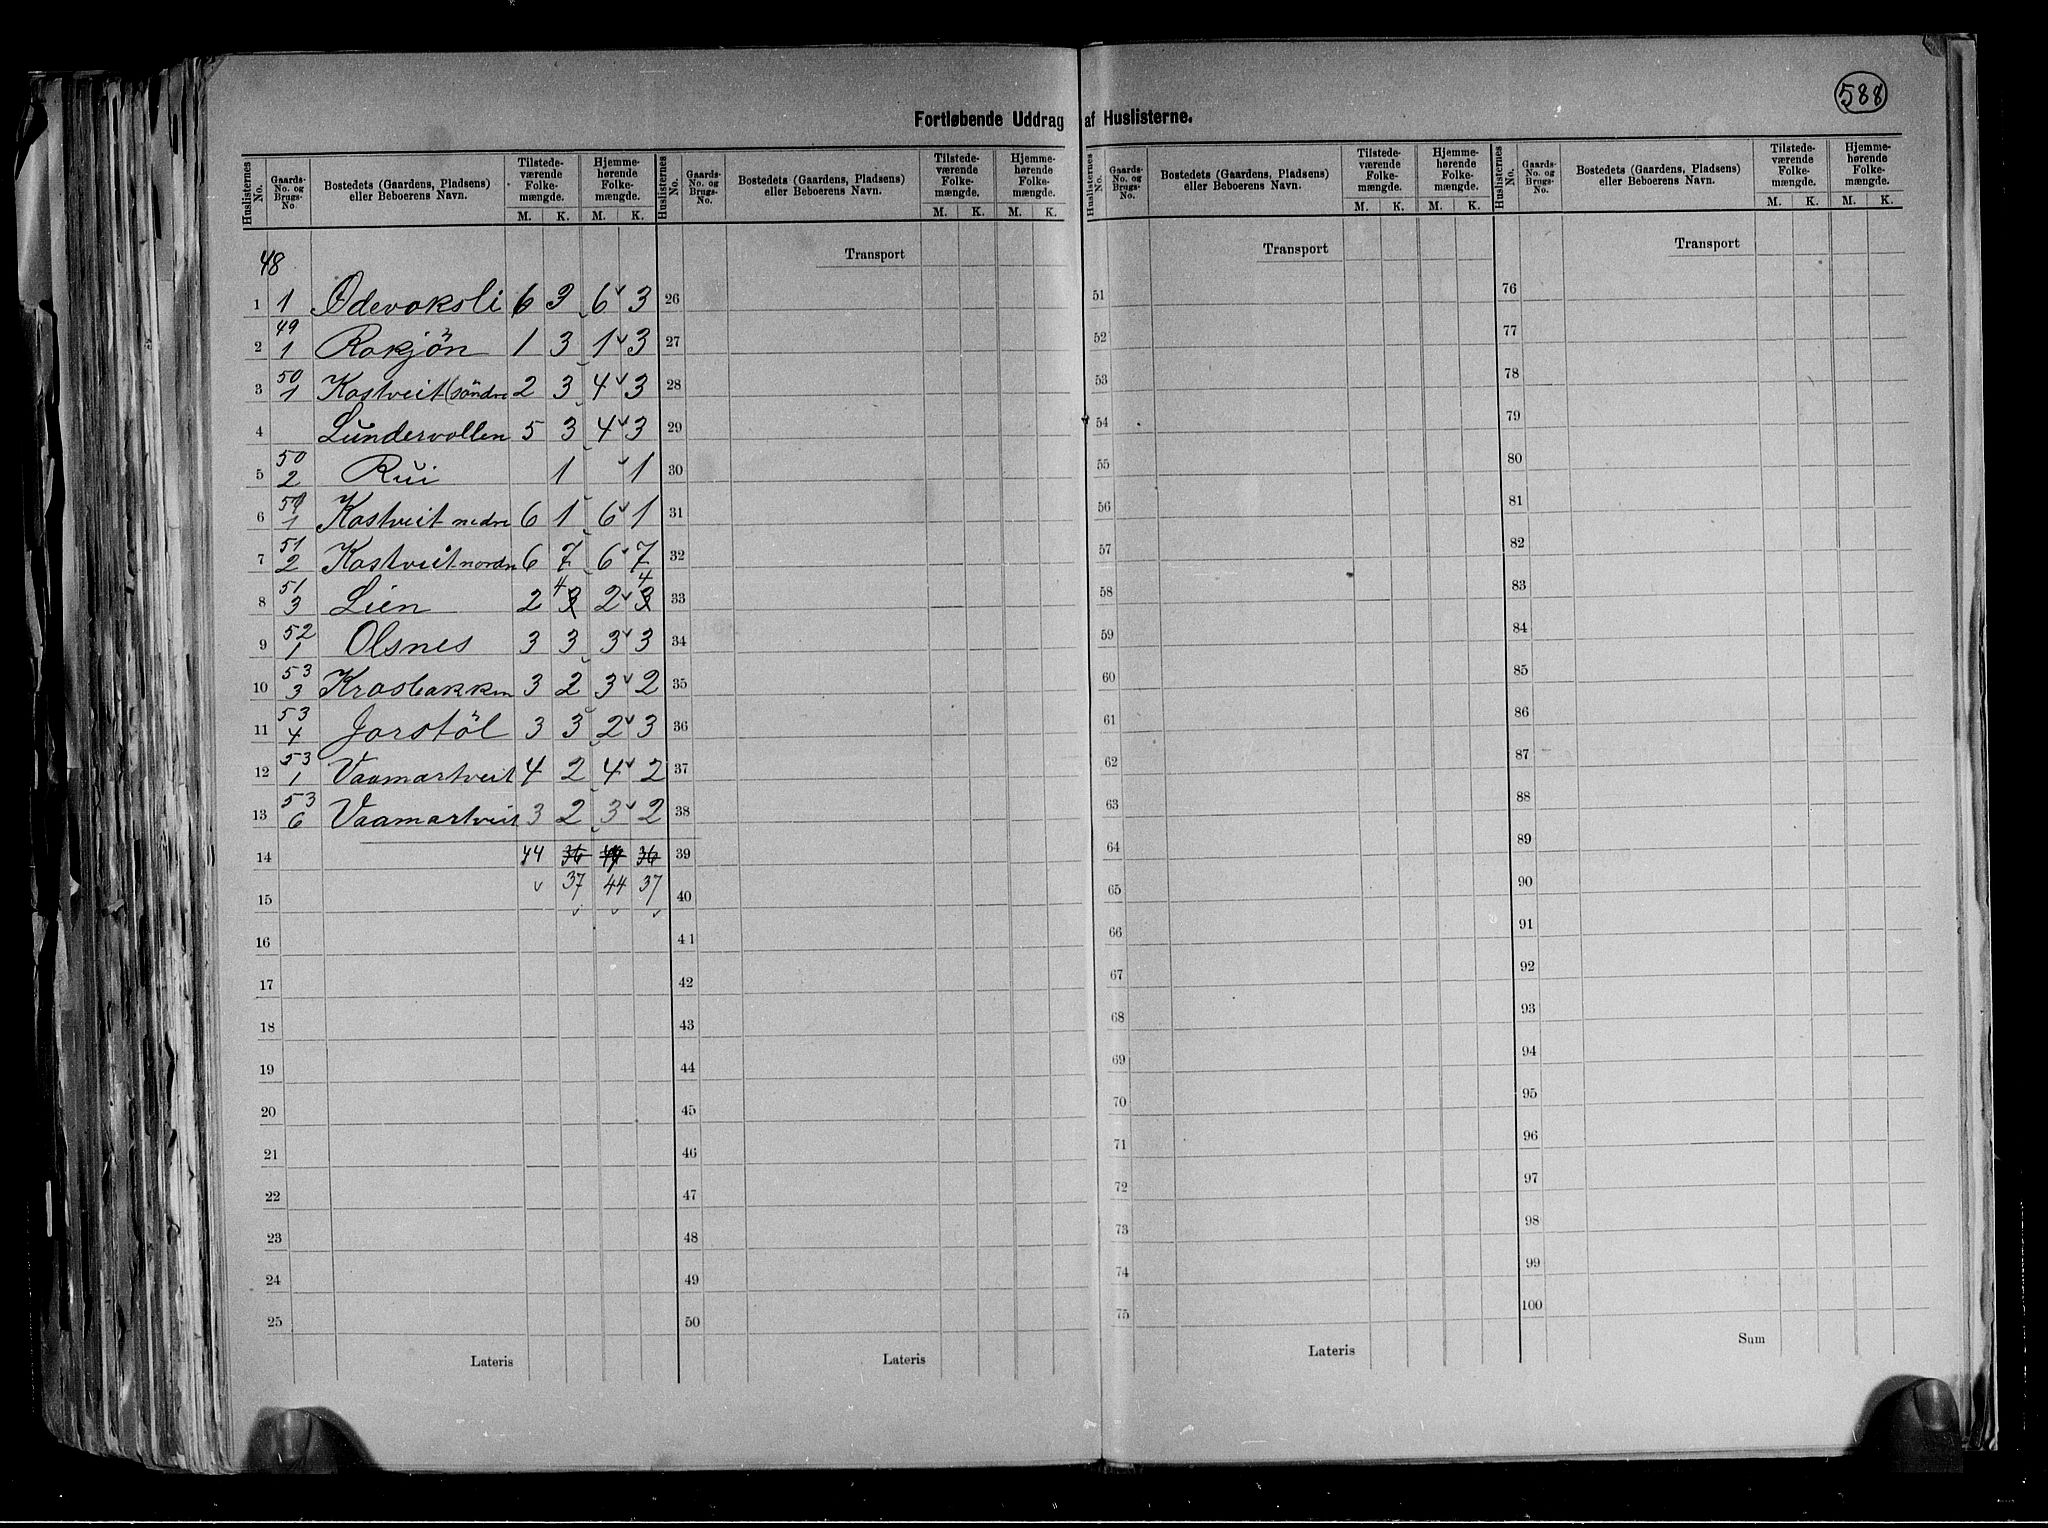 588
Fortløbende Uddrag af Huslisterne.
Huslisternes No. | Gaards-No. og Brugs-No. | Bostedets (Gaardens, Pladsens) eller Beboerens Navn. | Tilstedeværende Folkemængde. M. K. | Hjemmehørende Folkemængde. M. K.
Huslisternes No. | Gaards-No. og Brugs-No. | Bostedets (Gaardens, Pladsens) eller Beboerens Navn. | Tilstedeværende Folkemængde. M. K. | Hjemmehørende Folkemængde. M. K.
Huslisternes No. | Gaards-No. og Brugs-No. | Bostedets (Gaardens, Pladsens) eller Beboerens Navn. | Tilstedeværende Folkemængde. M. K. | Hjemmehørende Folkemængde. M. K.
Huslisternes No. | Gaards-No. og Brugs-No. | Bostedets (Gaardens, Pladsens) eller Beboerens Navn. | Tilstedeværende Folkemængde. M. K. | Hjemmehørende Folkemængde. M. K.
1 | 48 1 | Odevoksli | 6 | 3 | 6 | 3
2 | 49 1 | Rokjön | 1 | 3 | 1 | 3
3 | 50 1 | Kostveit (söndre | 2 | 3 | 4 | 3
4 | Lundervollen | 5 | 3 | 4 | 3
5 | 50 2 | Rui | 1 | 1
6 | 51 1 | Kostveit nedre | 6 | 1 | 6 | 1
7 | 51 2 | Kostveit nordre | 6 | 7 | 6 | 7
8 | 51 3 | Lien | 2 | 4 3 | 2 | 4 3
9 | 52 1 | Olsnes | 3 | 3 | 3 | 3
10 | 53 3 | Krosbakken | 3 | 2 | 3 | 2
11 | 53 4 | Jorstöl | 3 | 3 | 2 | 3
12 | 53 1 | Vaamartveit | 4 | 2 | 4 | 2
13 | 53 6 | Vaamartveit | 3 | 2 | 3 | 2
14 | 44 | 36 | 36
15 | 37 | 44 | 37
16
17
18
19
20
21
22
23
24
25
Lateris
Transport
26
27
28
29
30
31
32
33
34
35
36
37
38
39
40
41
42
43
44
45
46
47
48
49
50
Lateris
Transport
51
52
53
54
55
56
57
58
59
60
61
62
63
64
65
66
67
68
69
70
71
72
73
74
75
Lateris
Transport
76
77
78
79
80
81
82
83
84
85
86
87
88
89
90
91
92
93
94
95
96
97
98
99
100
Sum